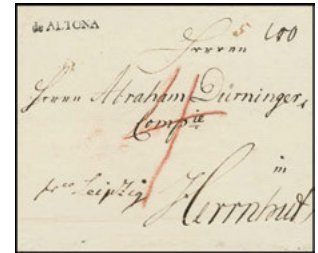 de ALTONA
Herren
Herrn Abraham Dürninger,
Compie
in
pco Leipzig
Herrnhut,